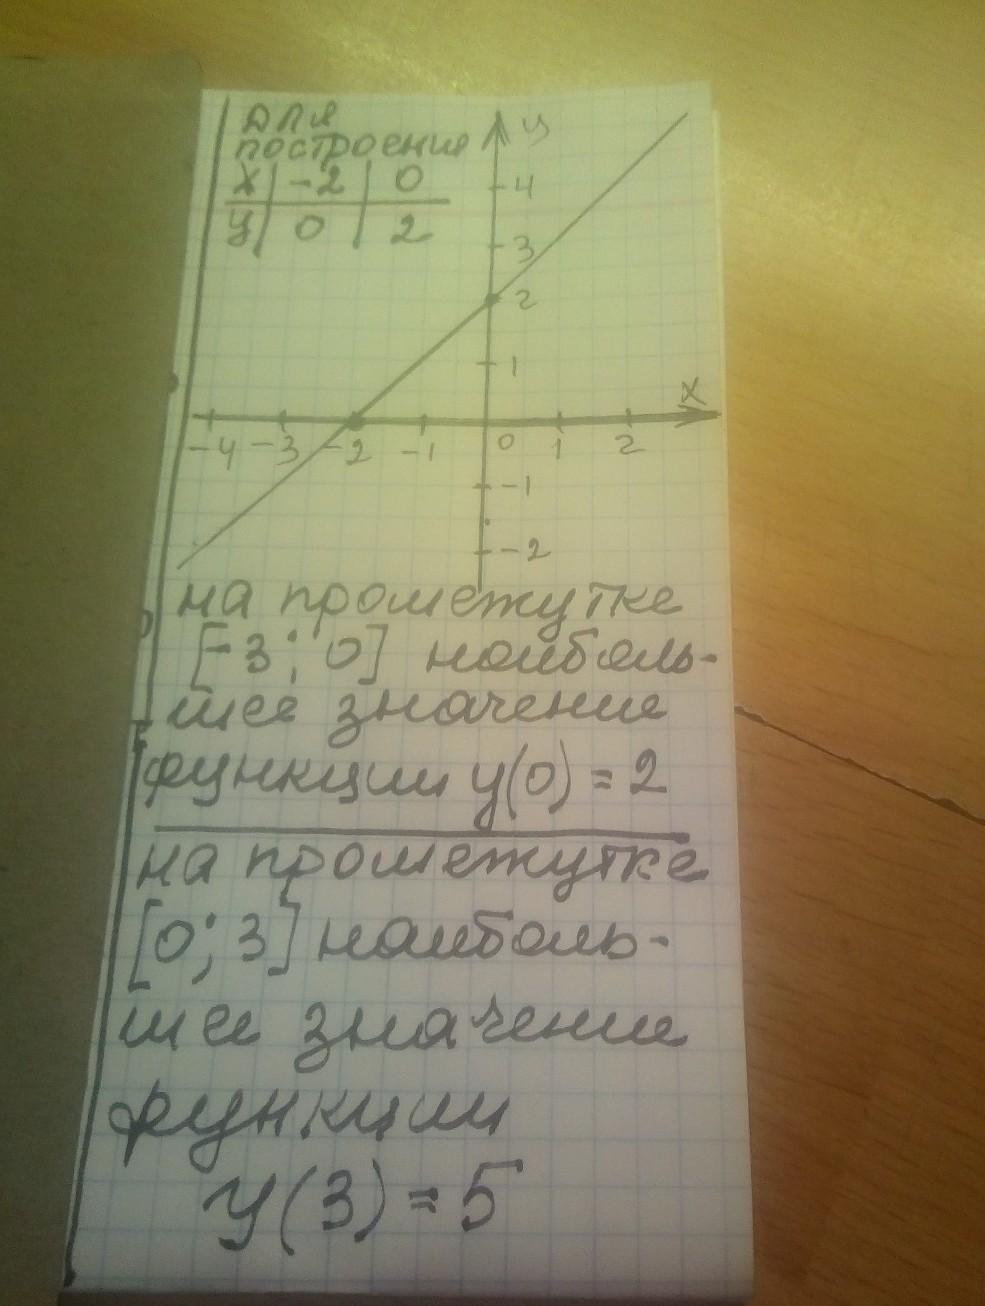 для
построения
x | -2 | 0
y | 0 | 2
y
4
3
2
1
x
-4 -3 -2 -1 0 1 2
-1
-2
на промежутке
[-3; 0] наиболь-
шее значение
функции y(0) = 2
на промежутке
[0; 3] наиболь-
шее значение
функции
y(3) = 5